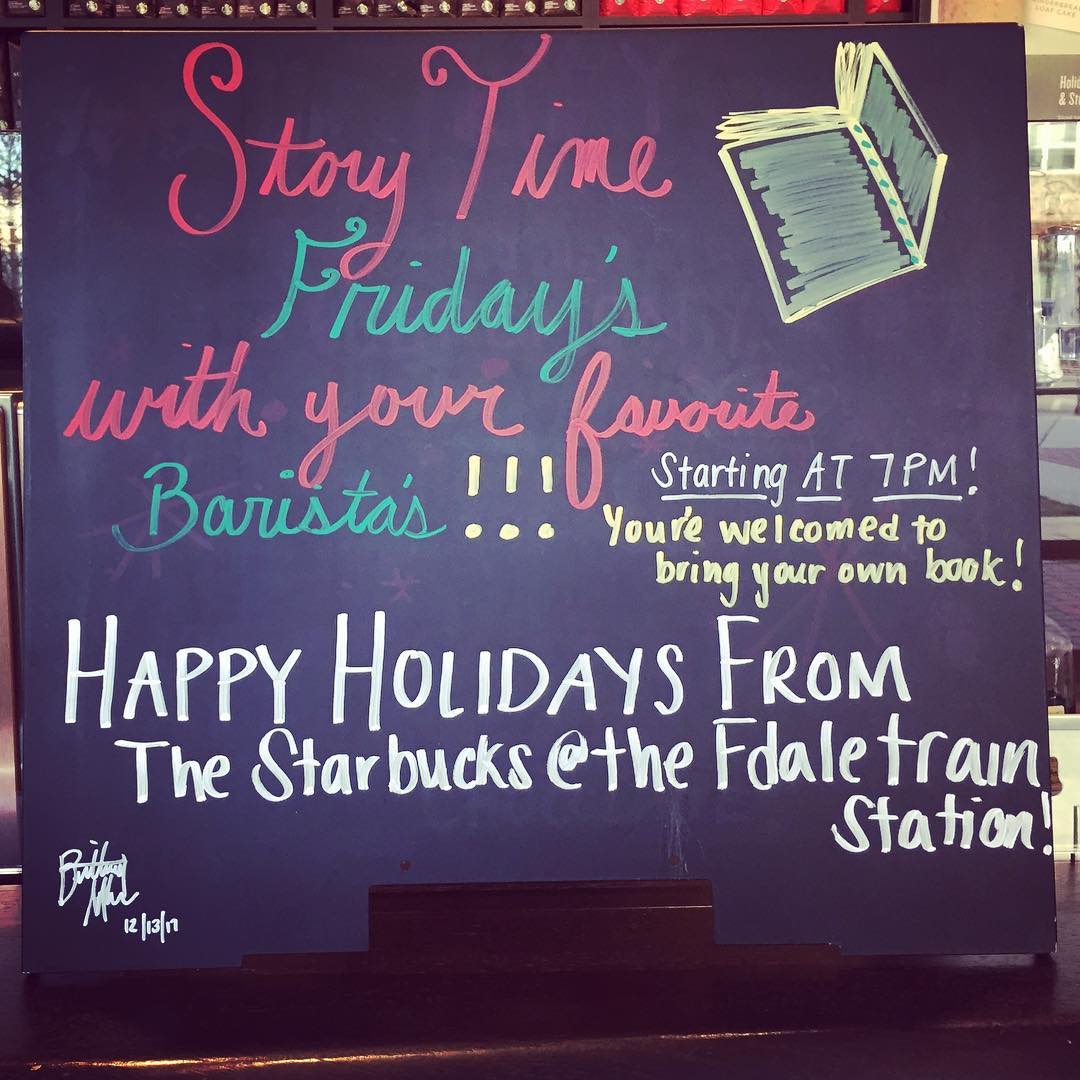 Story Time
Friday's
with your favorite
Barista's !!!
Starting AT 7PM!
You're welcomed to
bring your own book!
HAPPY HOLIDAYS FROM
The Starbucks @ the Fdale train
Station!
Brittany
12/13/17
Holid
& St
LOAF CAKE